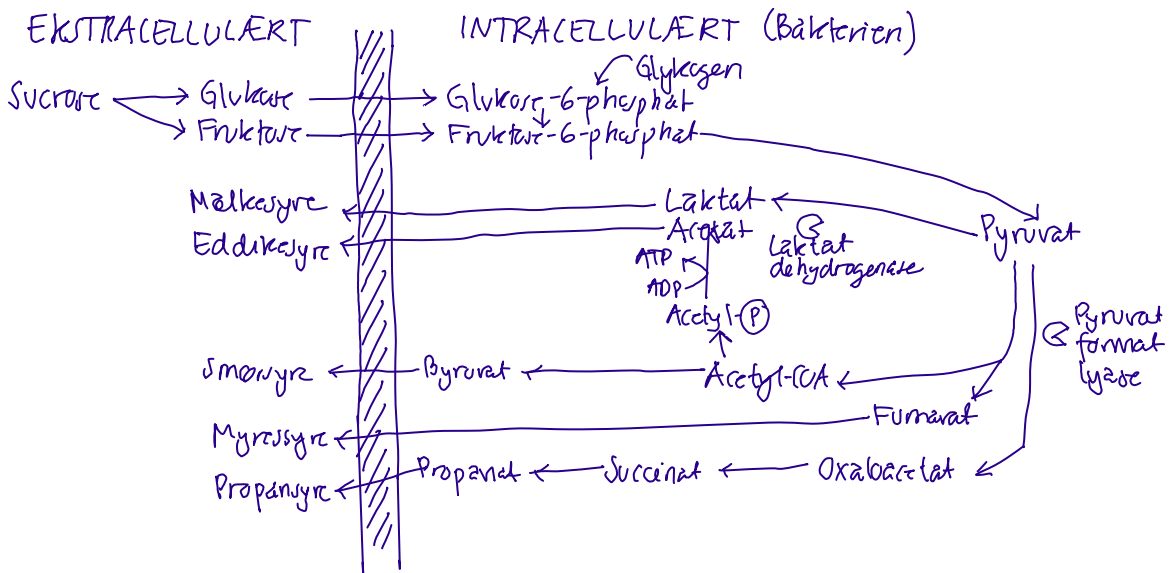 EKSTRACELLULÆRT
INTRACELLULÆRT (Bakterien)
Glykogen
Sucrose
Glukose
Glukose-6-phosphat
Fruktose
Fruktose-6-phosphat
Mælkesyre
Laktat
Eddikesyre
Acetat
Pyruvat
Laktat
dehydrogenase
ATP
ADP
Acetyl-P
Pyruvat
format
lyase
Smørsyre
Byruvat
Acetyl-COA
Fumarat
Myressyre
Propansyre
Propanat
Succinat
Oxaloacetat